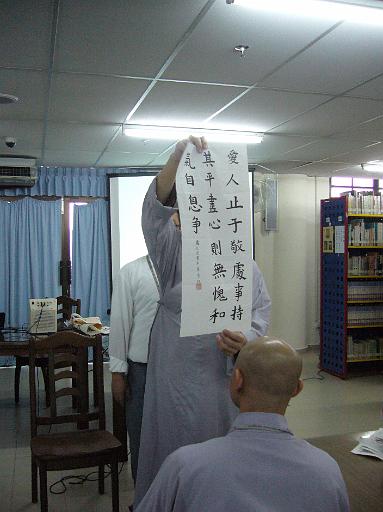 愛人止于敬處事持
其平盡心則無愧和
氣自息争